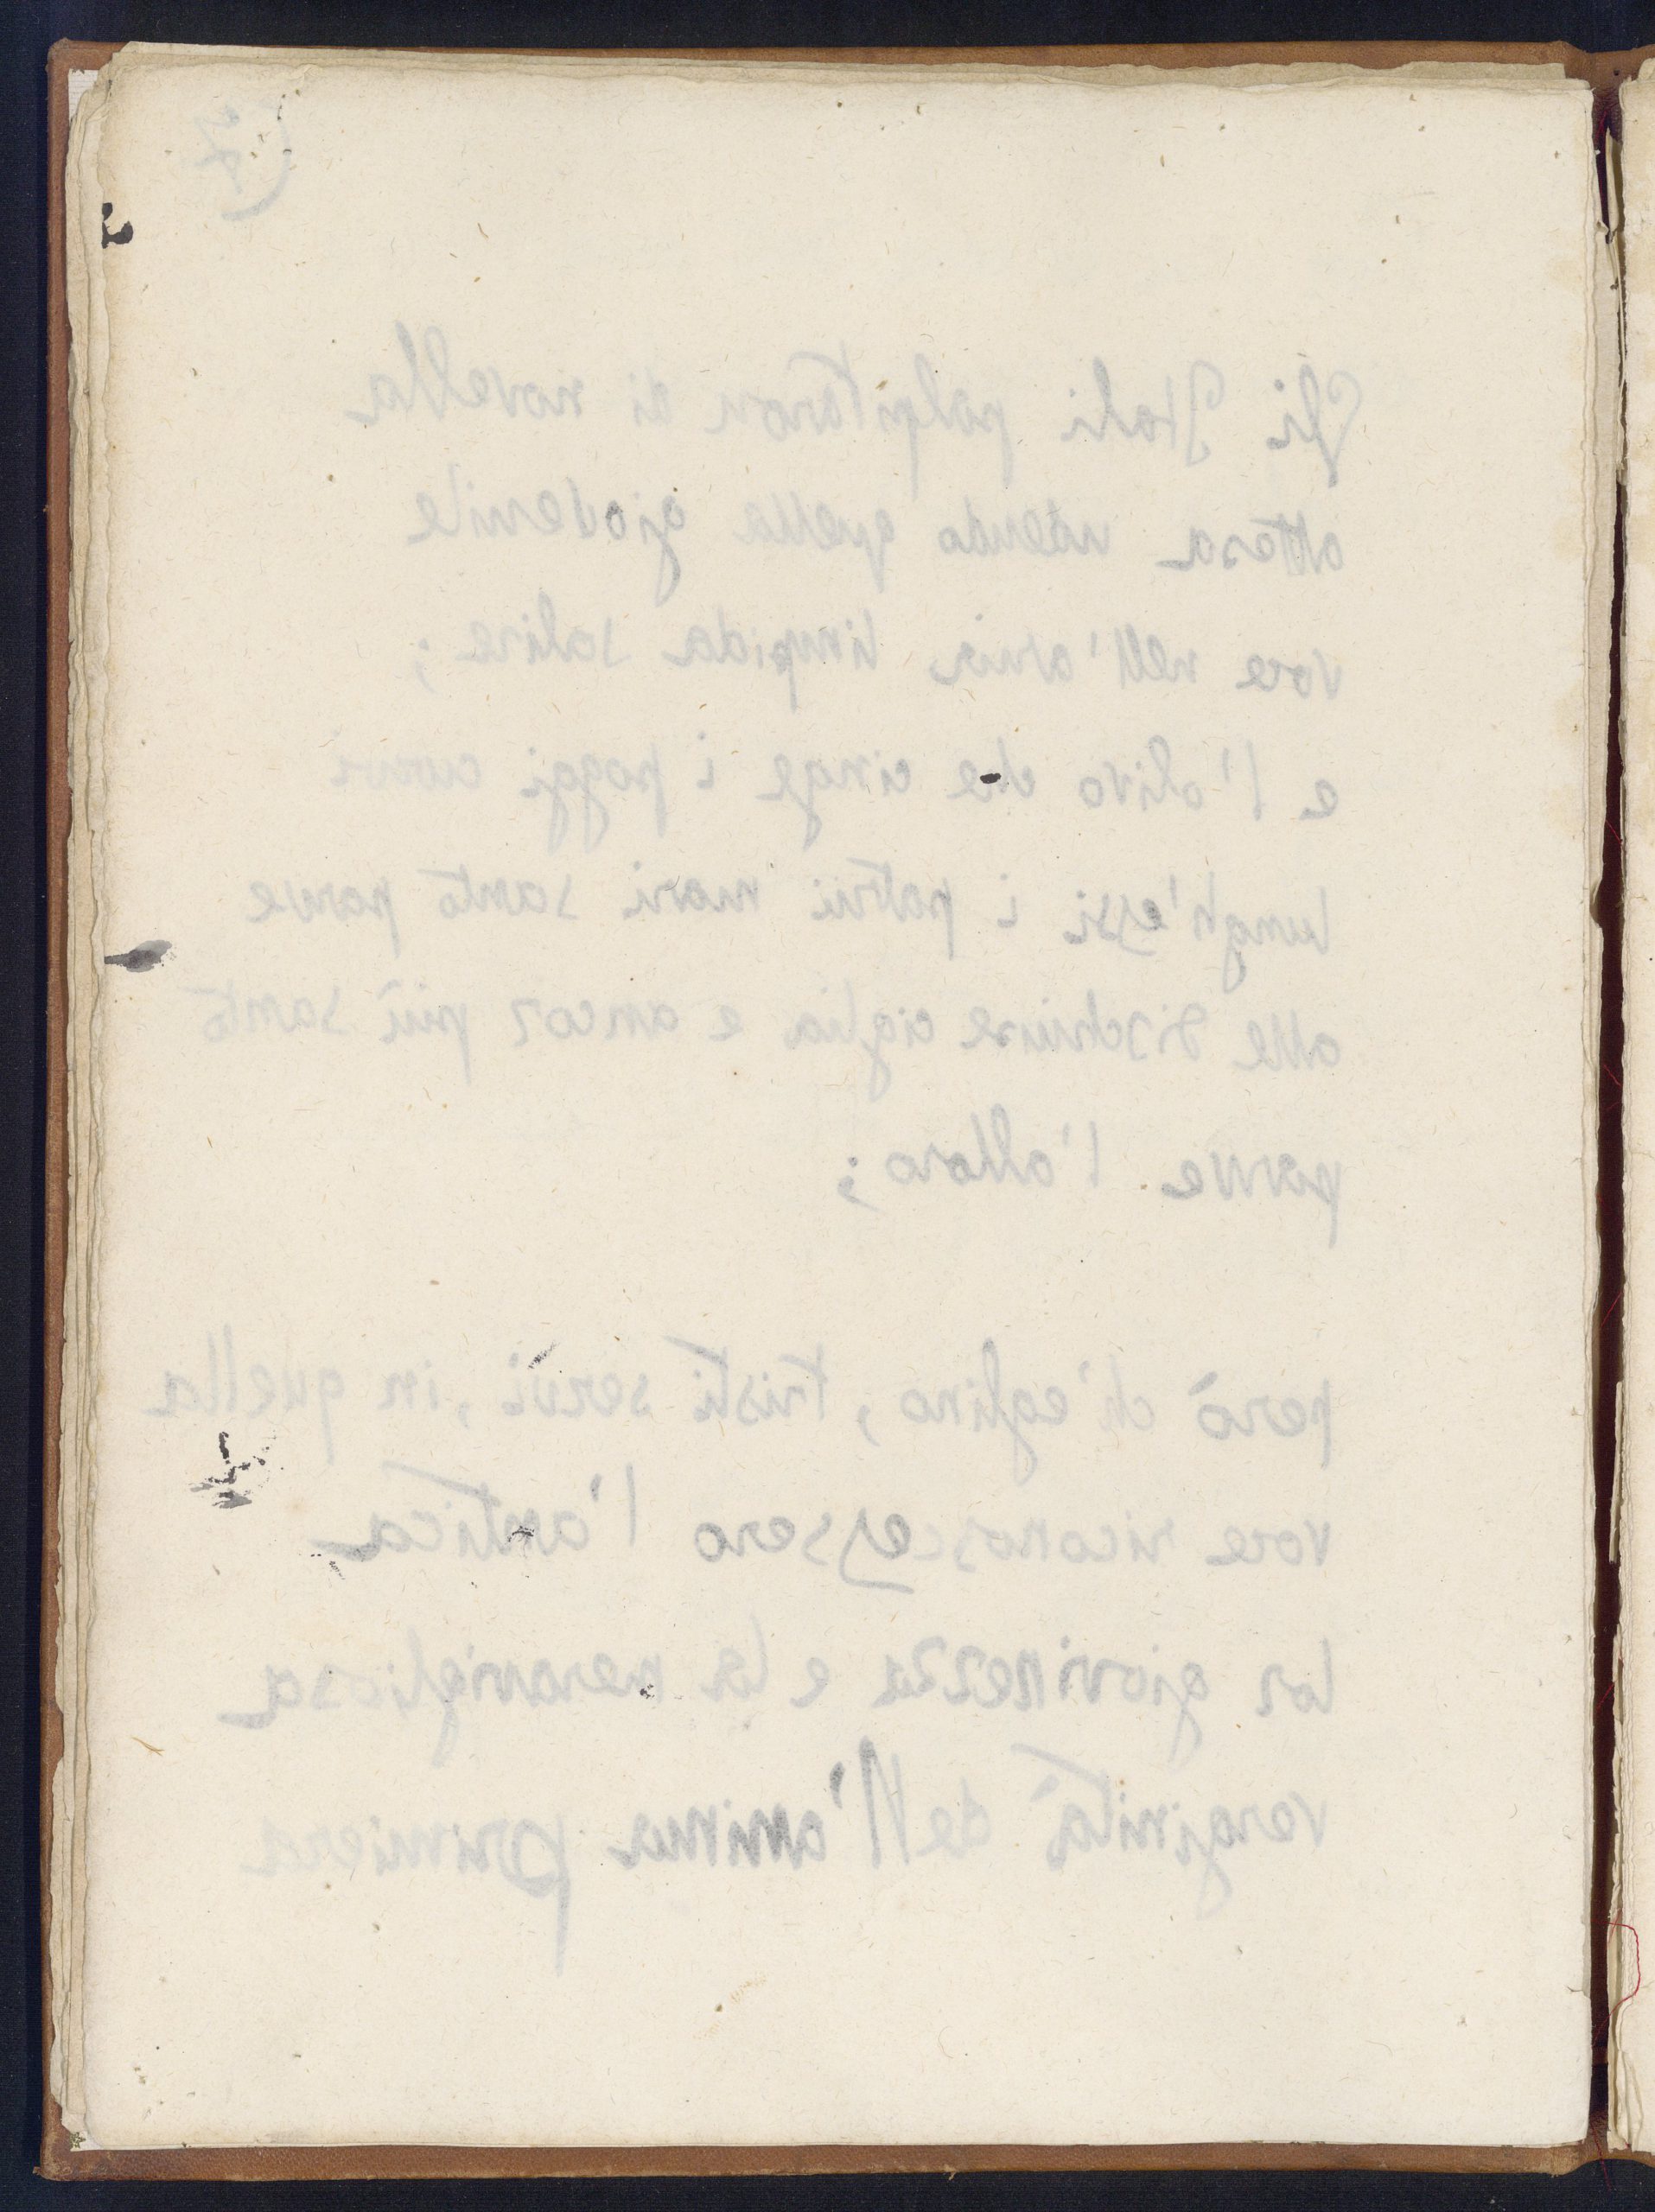 (7
Gli Itali palpitaron di novella
attesa udendo quella giovenile
voce nell'aria limpida salire;
e l'olivo che cinge i poggi curvi
lungh'essi i patrii mari santo parve
alle dischiuse ciglia e ancor più santo
parve l'alloro;
però ch'eglino, tristi servi, in quella
voce riconoscessero l'antica
lor giovinezza e la meravigliosa
verginità dell'anima primiera